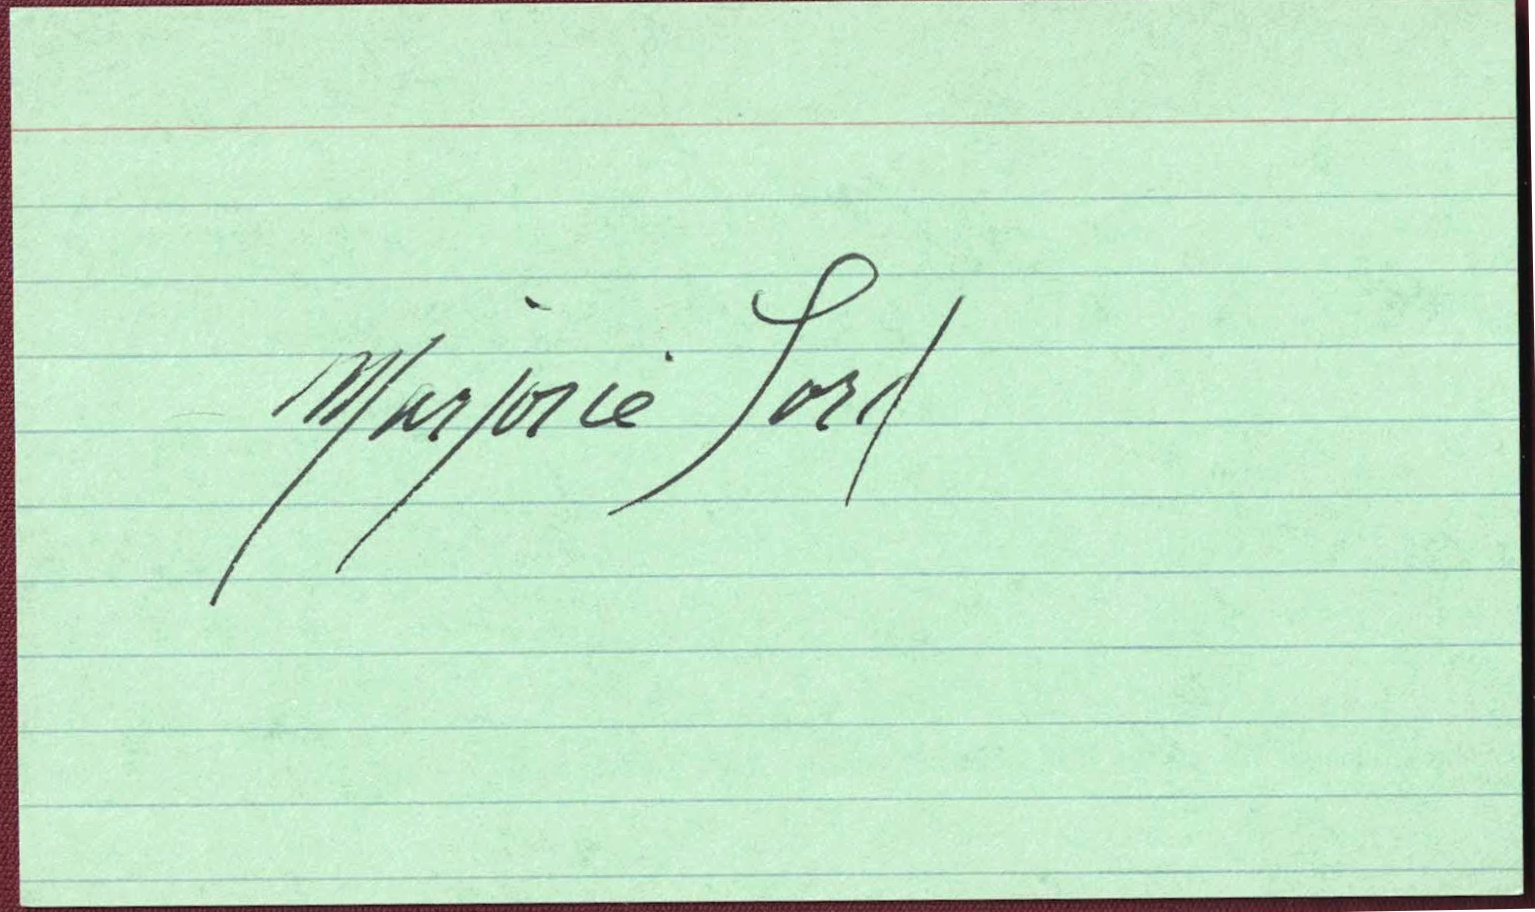 Marjorie Lord